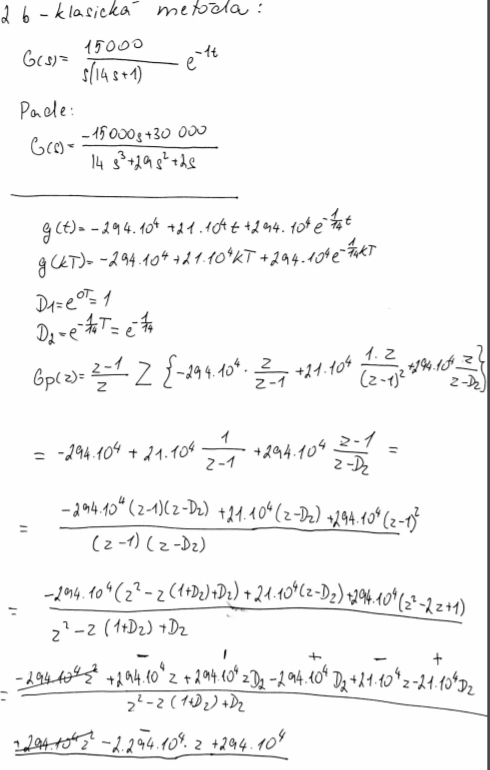 2 b - klasická metoda:
G(s) = 15000 / s(14s+1) e^-1t
Pade:
G(s) = -15000s+30 000 / 14 s^3+29s^2+2s
g(t) = -294.10^4 + 21.10^4 t + 294.10^4 e^-1/14 t
g(kT) = -294.10^4 + 21.10^4 kT + 294.10^4 e^-1/14 kT
D1 = e^0T = 1
D2 = e^-1/14 T = e^-1/14
Gp(z) = z-1 / z Z { -294.10^4 . z / z-1 + 21.10^4 1.z / (z-1)^2 + 294.10^4 z / z-D2 }
= -294.10^4 + 21.10^4 1 / z-1 + 294.10^4 z-1 / z-D2 =
= -294.10^4 (z-1)(z-D2) + 21.10^4 (z-D2) + 294.10^4 (z-1)^2 / (z-1) (z-D2)
= -294.10^4 (z^2 - z (1+D2)+D2) + 21.10^4 (z-D2) + 294.10^4 (z^2-2z+1) / z^2 - z (1+D2) + D2
= -294.10^4 z^2 + 294.10^4 z + 294.10^4 z D2 - 294.10^4 D2 + 21.10^4 z - 21.10^4 D2 / z^2 - z (1+D2) + D2
+294.10^4 z^2 - 2.294.10^4 . z + 294.10^4